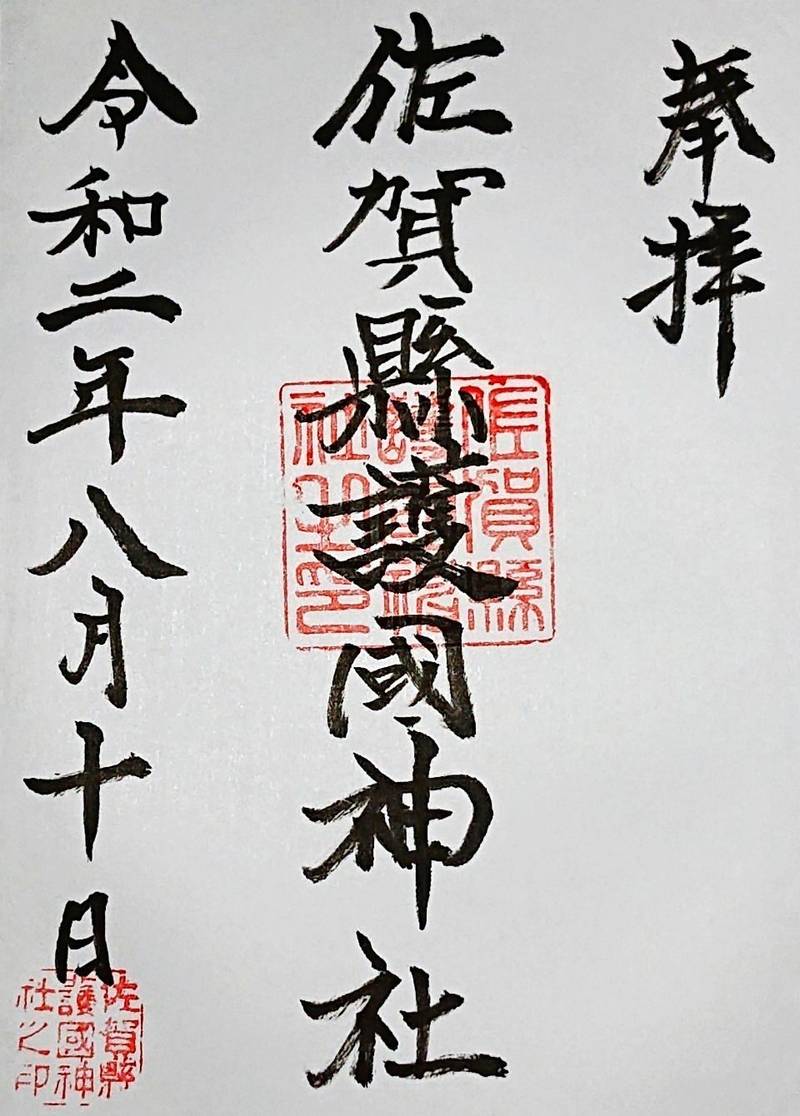 奉拝
佐賀縣護國神社
佐賀縣
護國神
社之印
令和二年八月十日
佐賀縣
護國神
社之印